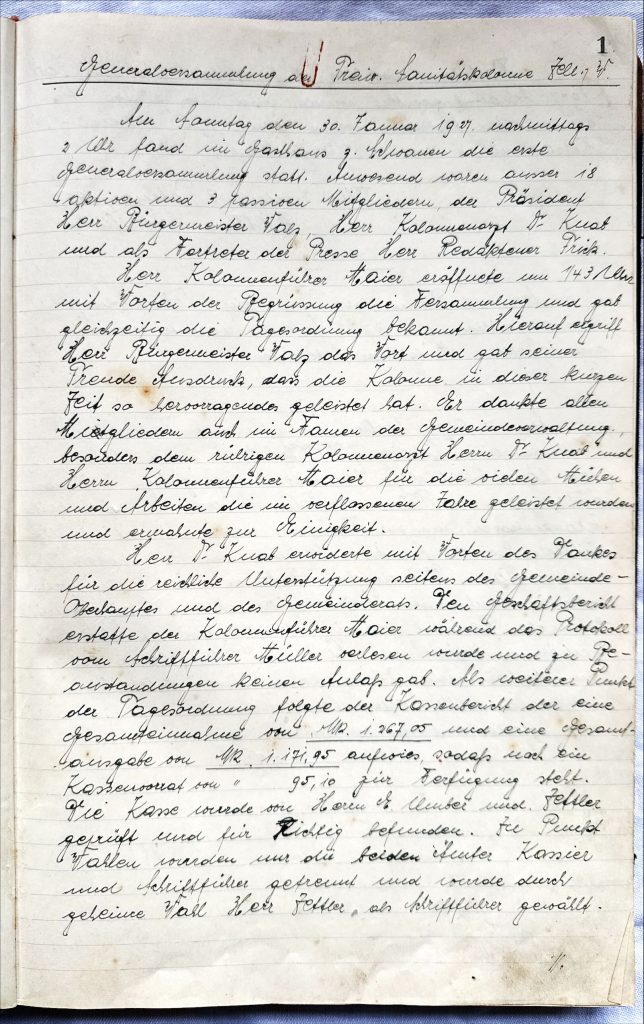 1
Generalversammlung der Freiw. Sanitätskolonne Zell a/ W.
Am Sonntag den 30. Januar 1927. nachmittags
2 Uhr fand im Gasthaus z. Schwanen die erste
Generalversammlung statt. Anwesend waren ausser 18
aktiven und 3 passiven Mitgliedern, der Präsident
Herr Bürgermeister Walz, Herr Kolonnenarzt Dr. Knab
und als Vertreter der Presse Herr Redakteuer Frick.
Herr Kolonnenführer Maier eröffnete um 1/43 Uhr
mit Worten der Begrüssung die Versammlung und gab
gleichzeitig die Tagesordnung bekannt. Hierauf ergriff
Herr Bürgermeister Walz das Wort und gab seiner
Freude Ausdruck, dass die Kolonne in dieser kurzen
Zeit so hervorragendes geleistet hat. Er dankte allen
Mitgliedern auch im Namen der Gemeindeverwaltung,
besonders dem rührigen Kolonnenarzt Herrn Dr. Knab und
Herrn Kolonnenführer Maier für die vielen Mühen
und Arbeiten die im verflossenen Jahre geleistet wurden
und ermahnte zur Einigkeit.
Herr Dr. Knab erwiderte mit Worten des Dankes
für die reichliche Unterstützung seitens des Gemeinde-
Oberhauptes und des Gemeinderats. Den Geschäftsbericht
erstatte der Kolonnenführer Maier während das Protokoll
vom Schriftführer Müller verlesen wurde und zu Be-
anstandungen keinen Anlaß gab. Als weiterer Punkt
der Tagesordnung folgte der Kassenbericht der eine
Gesamteinnahme von M. 1.267,05 und eine Gesamt-
ausgabe von M. 1.171,95 aufwies, sodaß noch ein
Kassenvorrat von " 95,10 zur Verfügung steht.
Die Kasse wurde von Herrn E. Umber und Zettler
geprüft und für Richtig befunden. Zu Punkt
Wahlen wurden nur die beiden Ämter Kassier
und Schriftführer getrennt und wurde durch
geheime Wahl Herr Zettler, als Schriftführer gewählt.
./.